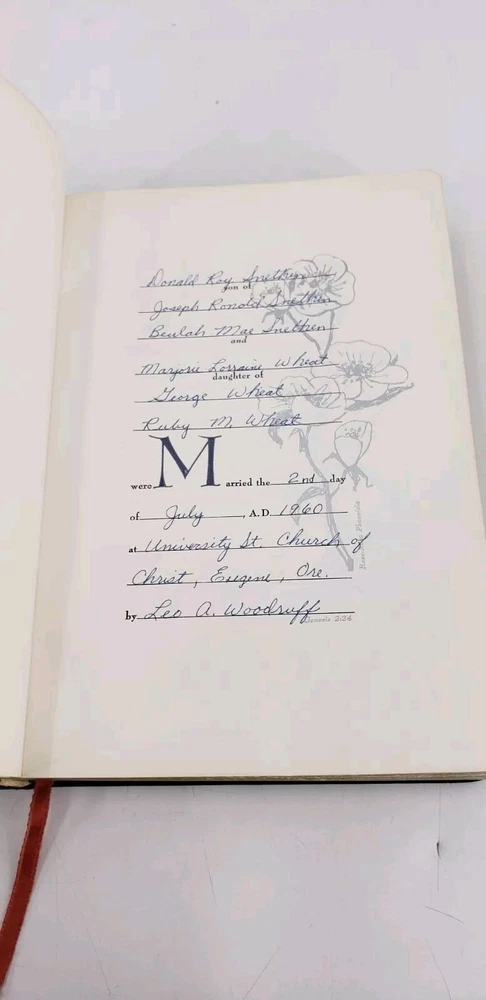 Donald Roy Snethen
son of
Joseph Ronald Snethen
Beulah Mae Snethen
and
Marjorie Lorraine Wheat
daughter of
George Wheat
Ruby M. Wheat
were Married the 2nd day
of July, A.D. 1960
at University St. Church of
Christ, Eugene, Ore.
by Leo A. Woodruff
Genesis 2:24